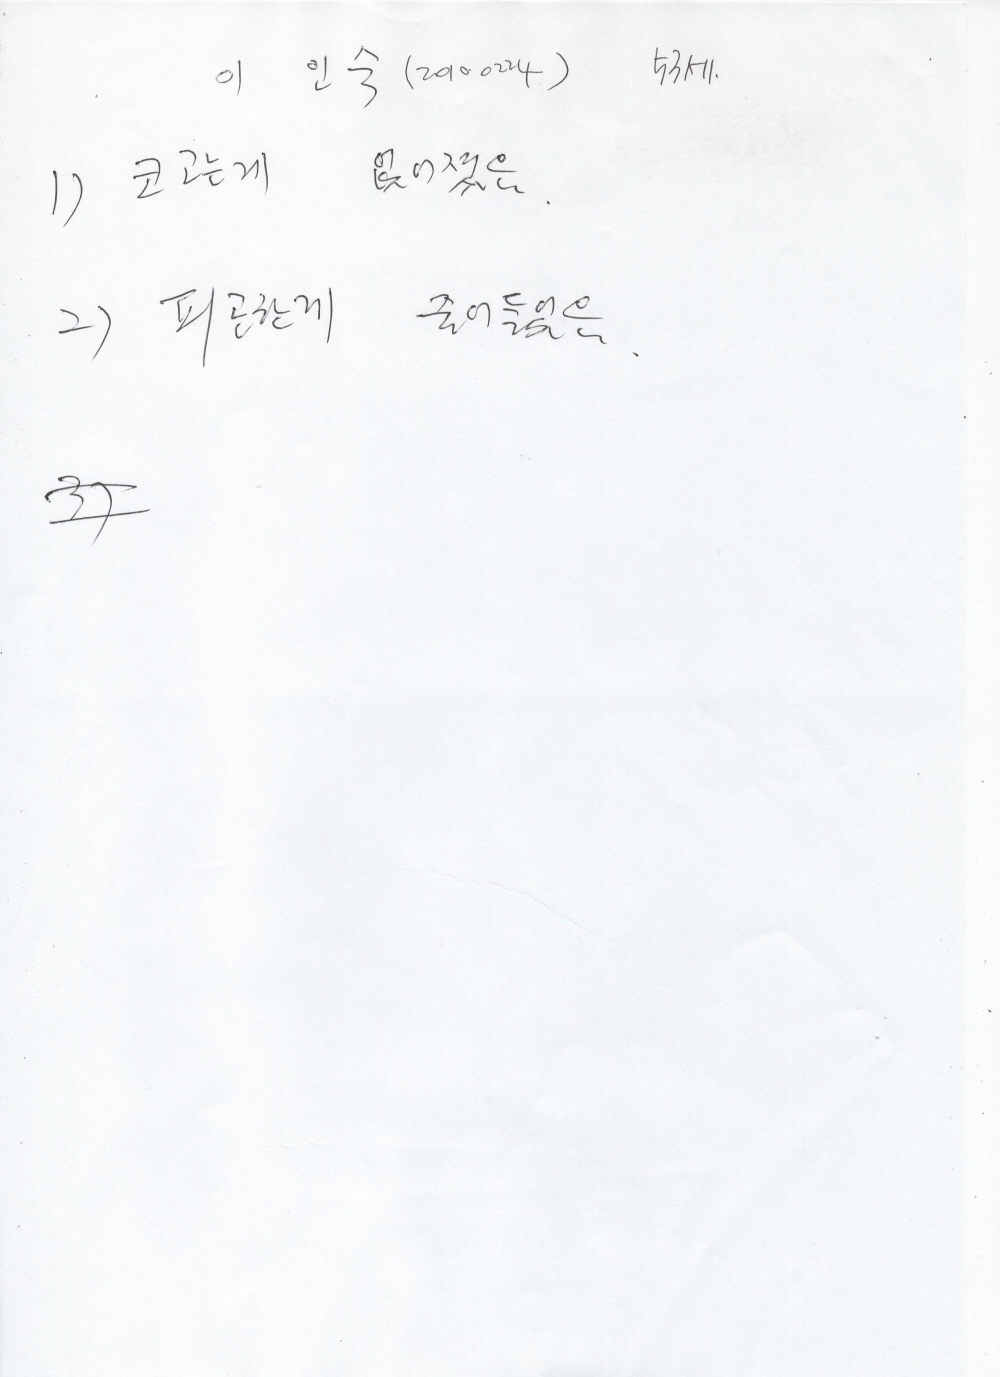 이 인숙 (20100224) 53세.
1) 코고는게 없어졌음.
2) 피곤한게 줄어들었음.
3)